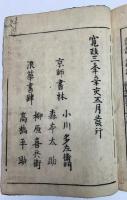 寛政三年辛亥五月發行
京師書林
小川多左衛門
森本太助
浪華書肆
柳原喜兵衛
高橋平助